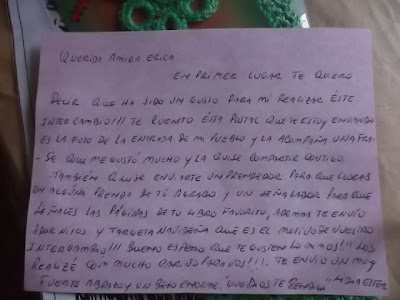 QUERIDA AMIGA ERICA
EN PRIMER LUGAR TE QUIERO
DECIR QUE HA SIDO UN GUSTO PARA MI REALIZAR ÉSTE
INTERCAMBIO!!! TE CUENTO ÉSTA POSTAL QUE TE ESTOY ENVIANDO
ES LA FOTO DE LA ENTRADA DE MI PUEBLO Y LA ACOMPAÑA UNA FRA-
- SE QUE ME GUSTÓ MUCHO Y LA QUISE COMPARTIR CONTIGO.
- TAMBIÉN QUISE ENVIARTE UN PRENDEDOR PARA QUE LUZCAS
EN ALGUNA PRENDA DE TÚ AGRADO Y UN SEÑALADOR PARA QUE
SEÑALES LAS PÁGINAS DE TU LIBRO FAVORITO, ADEMÁS TE ENVÍO
ADORNITOS Y TARGETA NAVIDEÑA QUE ES EL MOTIVO DE NUESTRO
INTERCAMBIO!!! BUENO ESPERO QUE TE GUSTEN LOS MIMOS!!! LOS
REALIZÉ CON MUCHO CARIÑO PARA VOS!!!. TE ENVIO UN MUY
FUERTE ABRAZO Y UN BESO ENORME. QUE DIOS TE BENDIGA ESTER